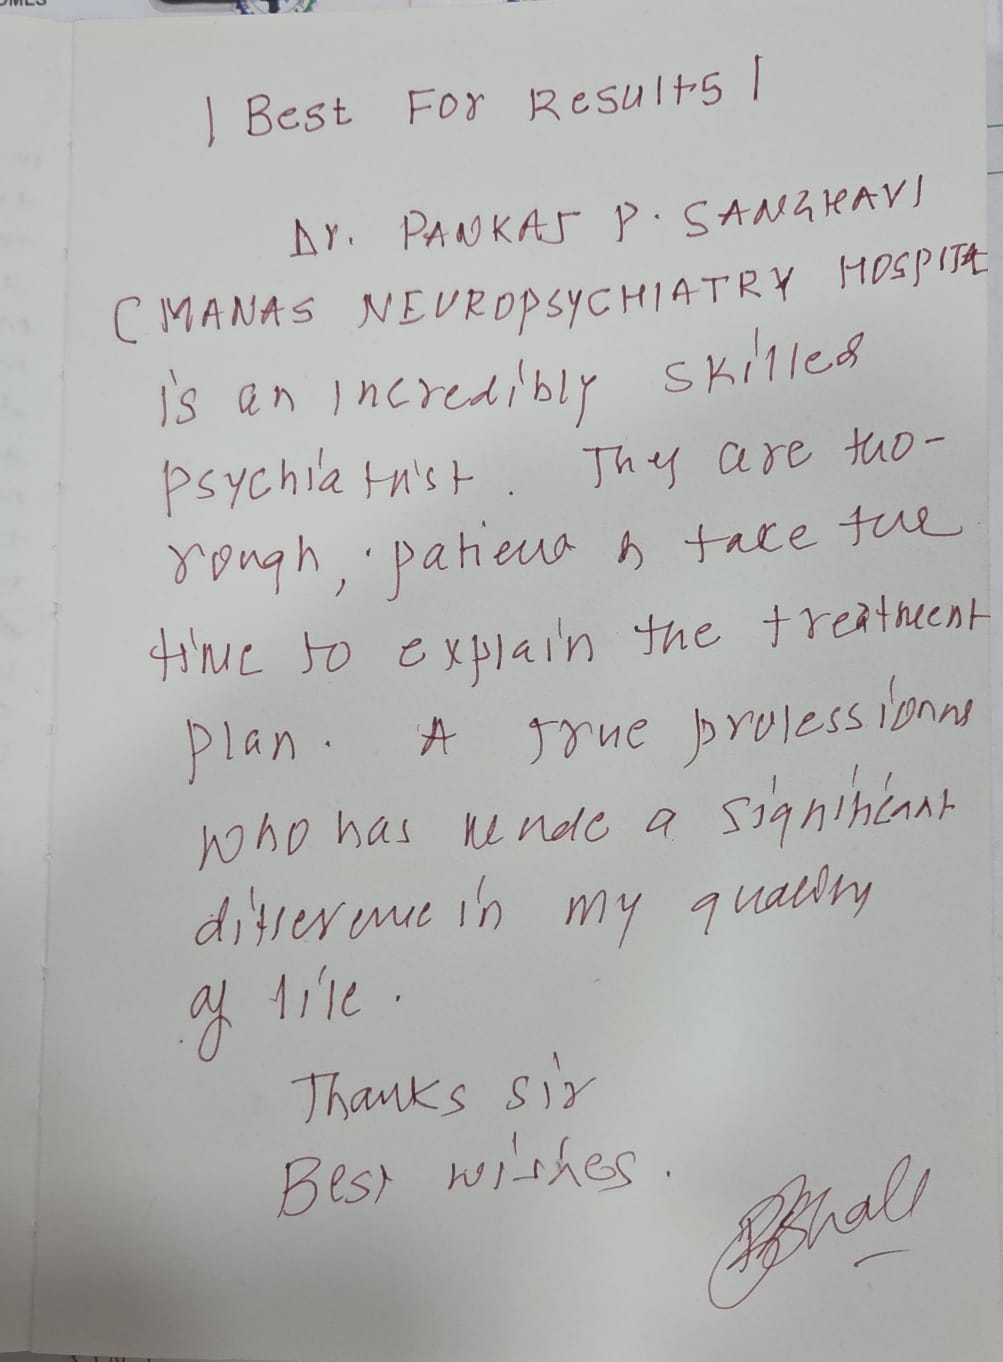 | Best For Results |
Dr. PANKAJ P. SANGHAVI
( MANAS NEUROPSYCHIATRY HOSPITAL
is an incredibly skilled
psychiatrist. They are tho-
rough, patient & take the
time to explain the treatment
plan. A true professional
who has made a significant
difference in my quality
of life.
Thanks sir
Best wishes.